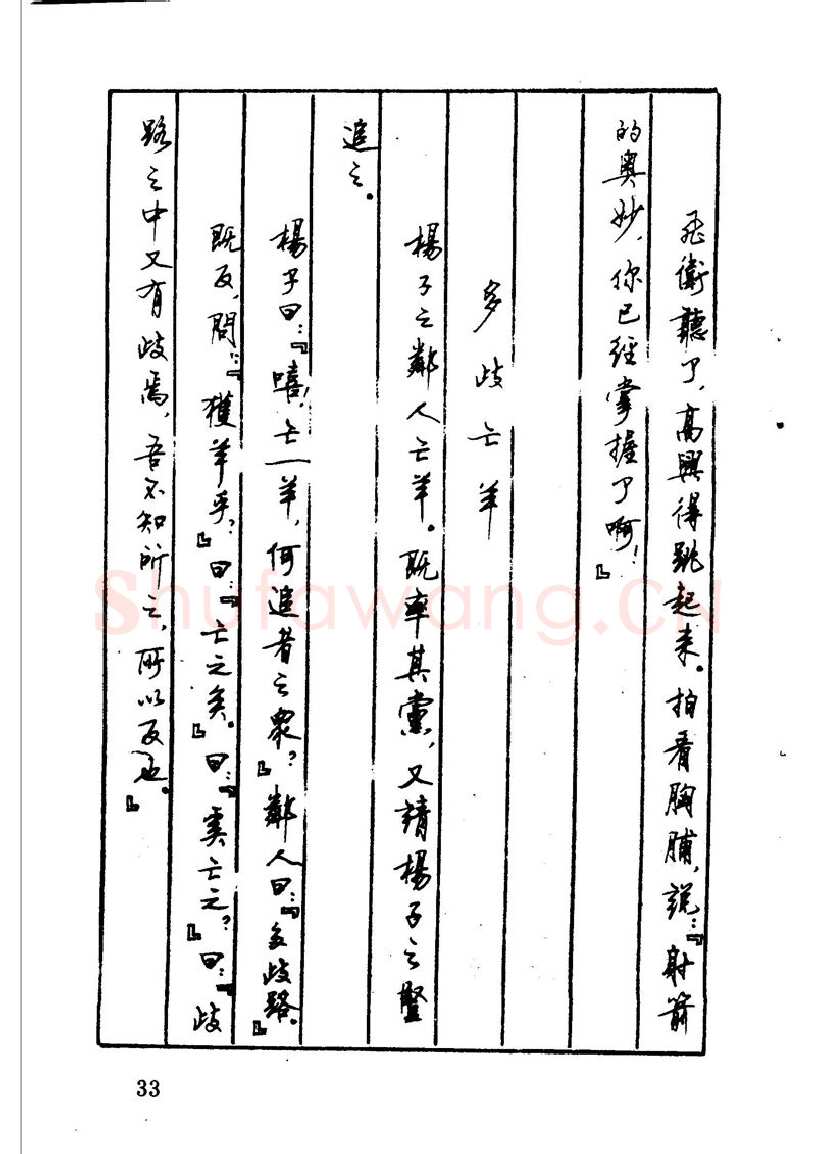 飛衛聽了，高興得跳起來。拍着胸脯，說：『射箭
的奧妙，你已經掌握了啊！』
多歧亡羊
楊子之鄰人亡羊。既率其黨，又請楊子之豎
追之。
楊子曰：『嘻！亡一羊，何追者之衆？』鄰人曰：『多歧路。』
既反，問：『獲羊乎？』曰：『亡之矣。』曰：『奚亡之？』曰：『歧
路之中又有歧焉，吾不知所之，所以反也。』
33
Shufawang.CN